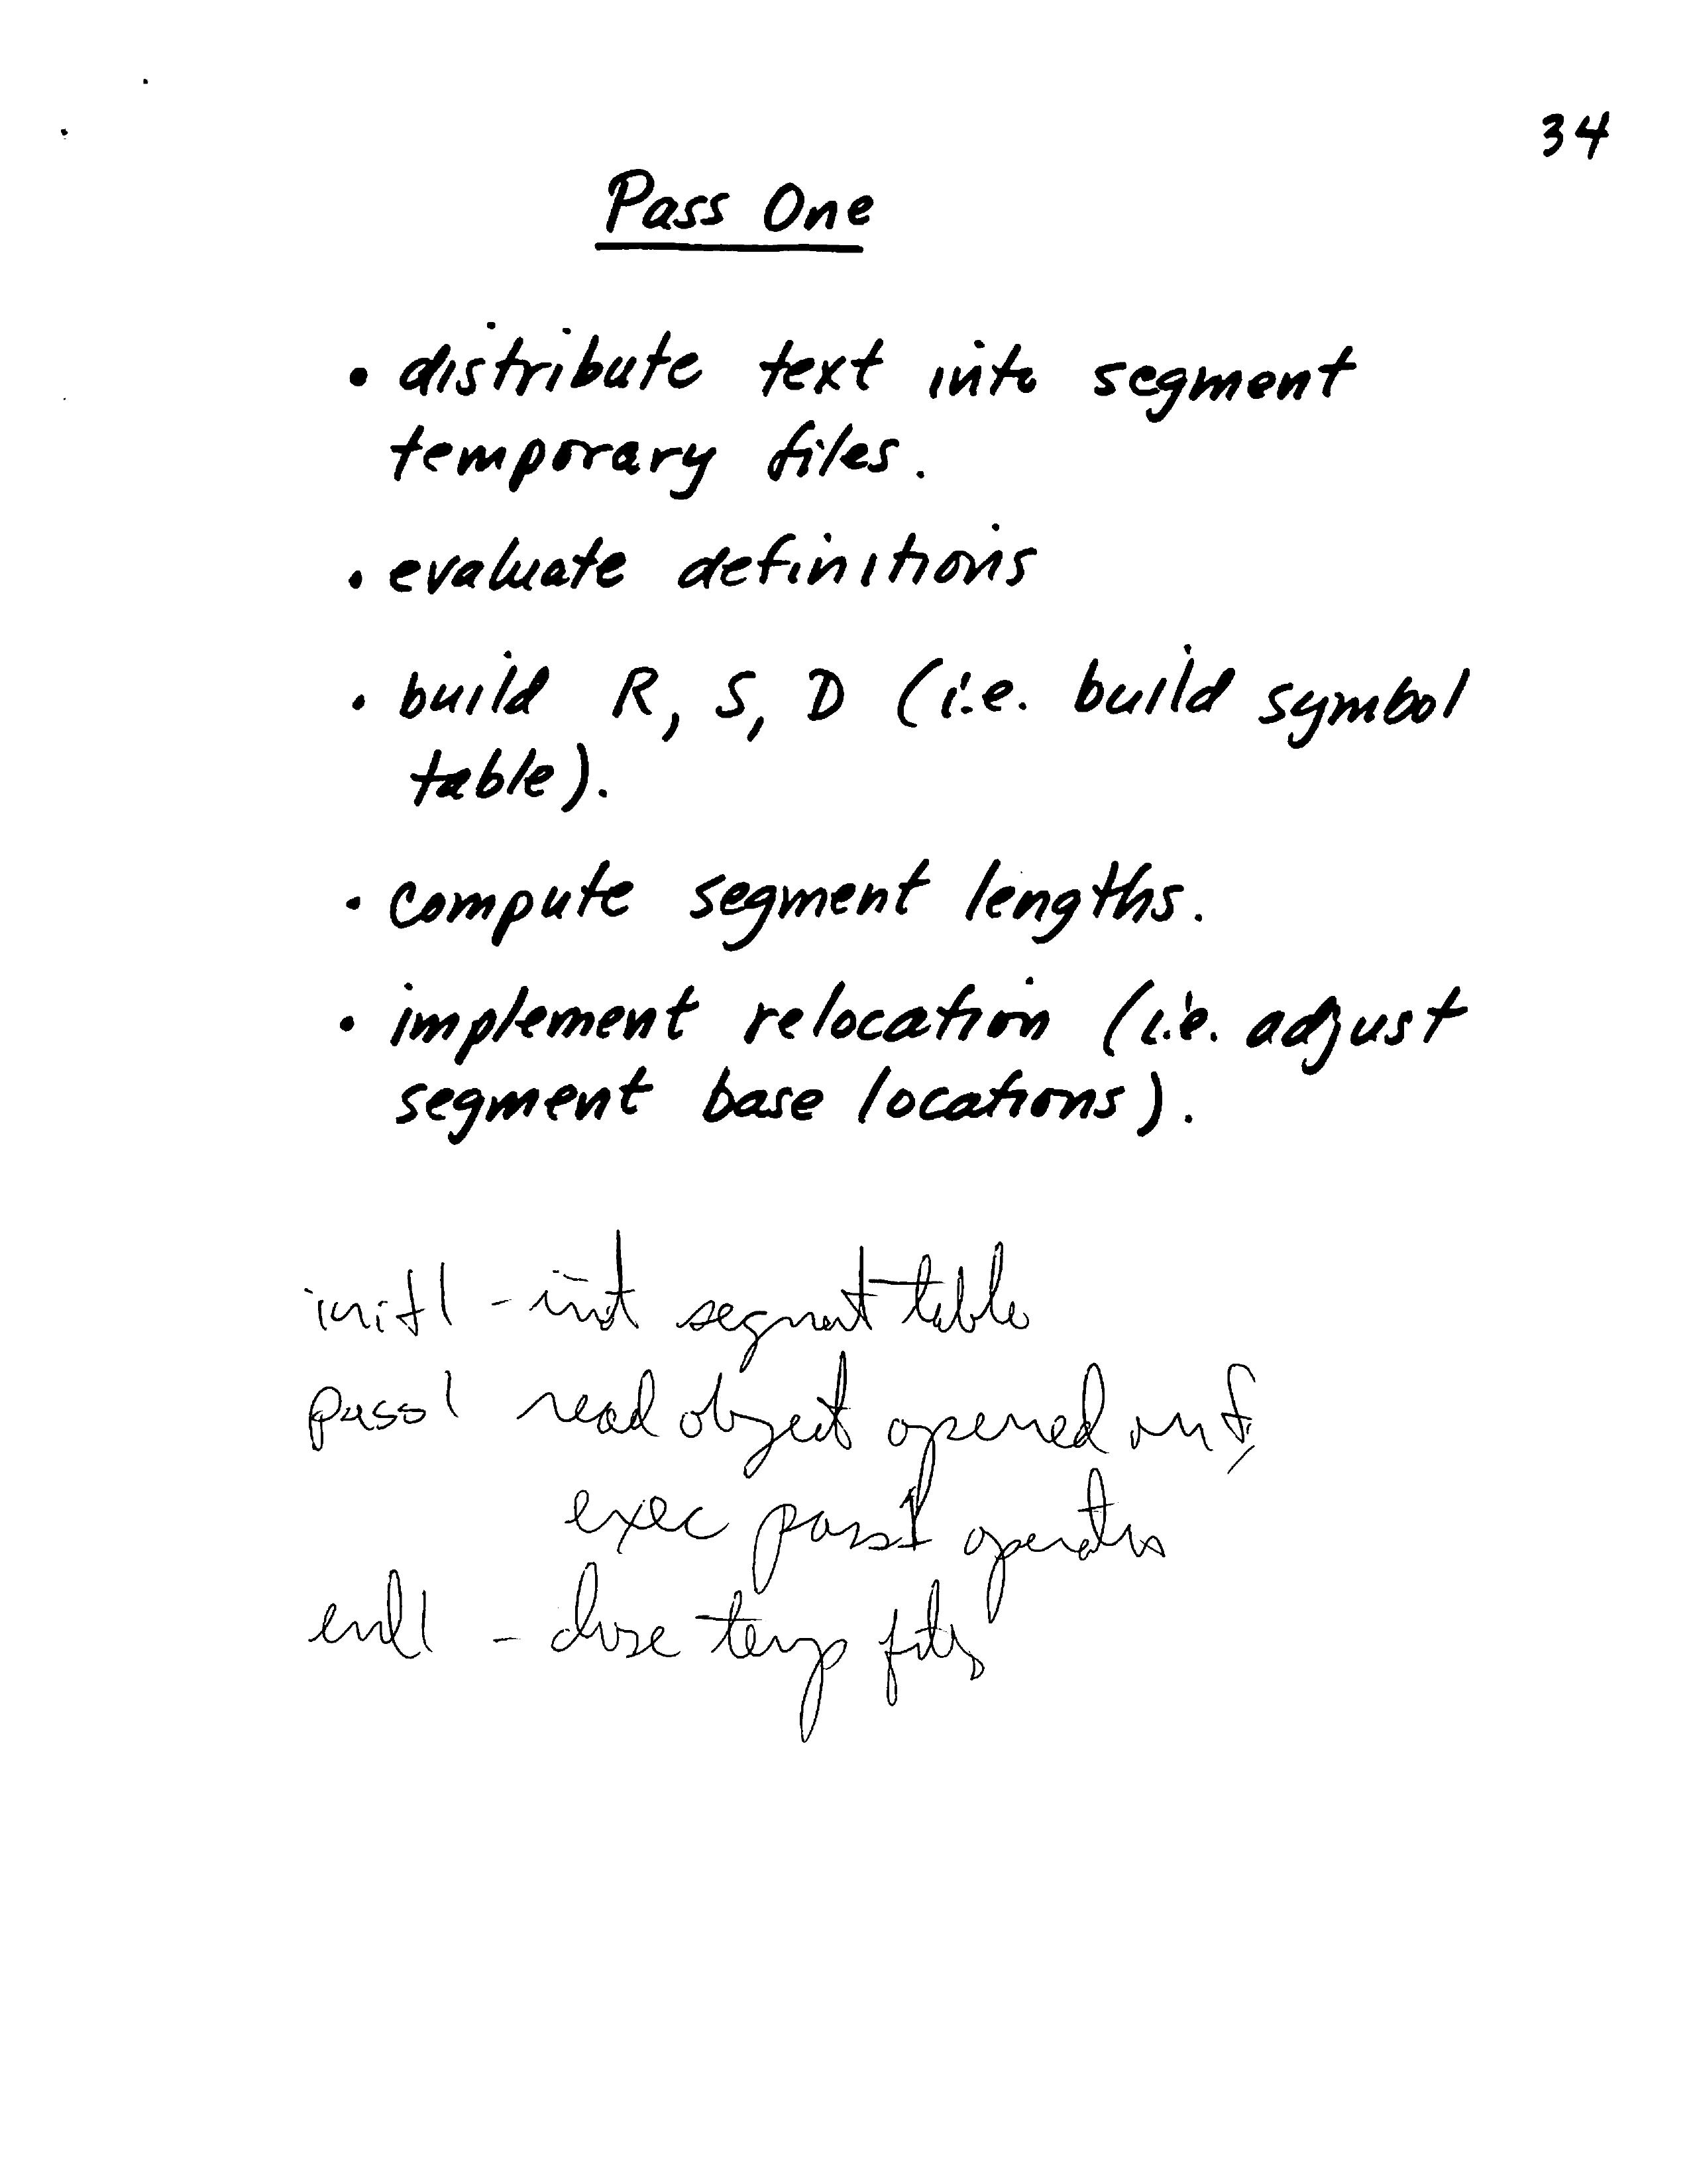 34
Pass One
• distribute text into segment
temporary files.
• evaluate definitions
• build R, S, D (i.e. build symbol
table).
• compute segment lengths.
• implement relocation (i.e. adjust
segment base locations).
init1 - init segment table
pass1 read object opened
exec pass1
end1 - close temp files